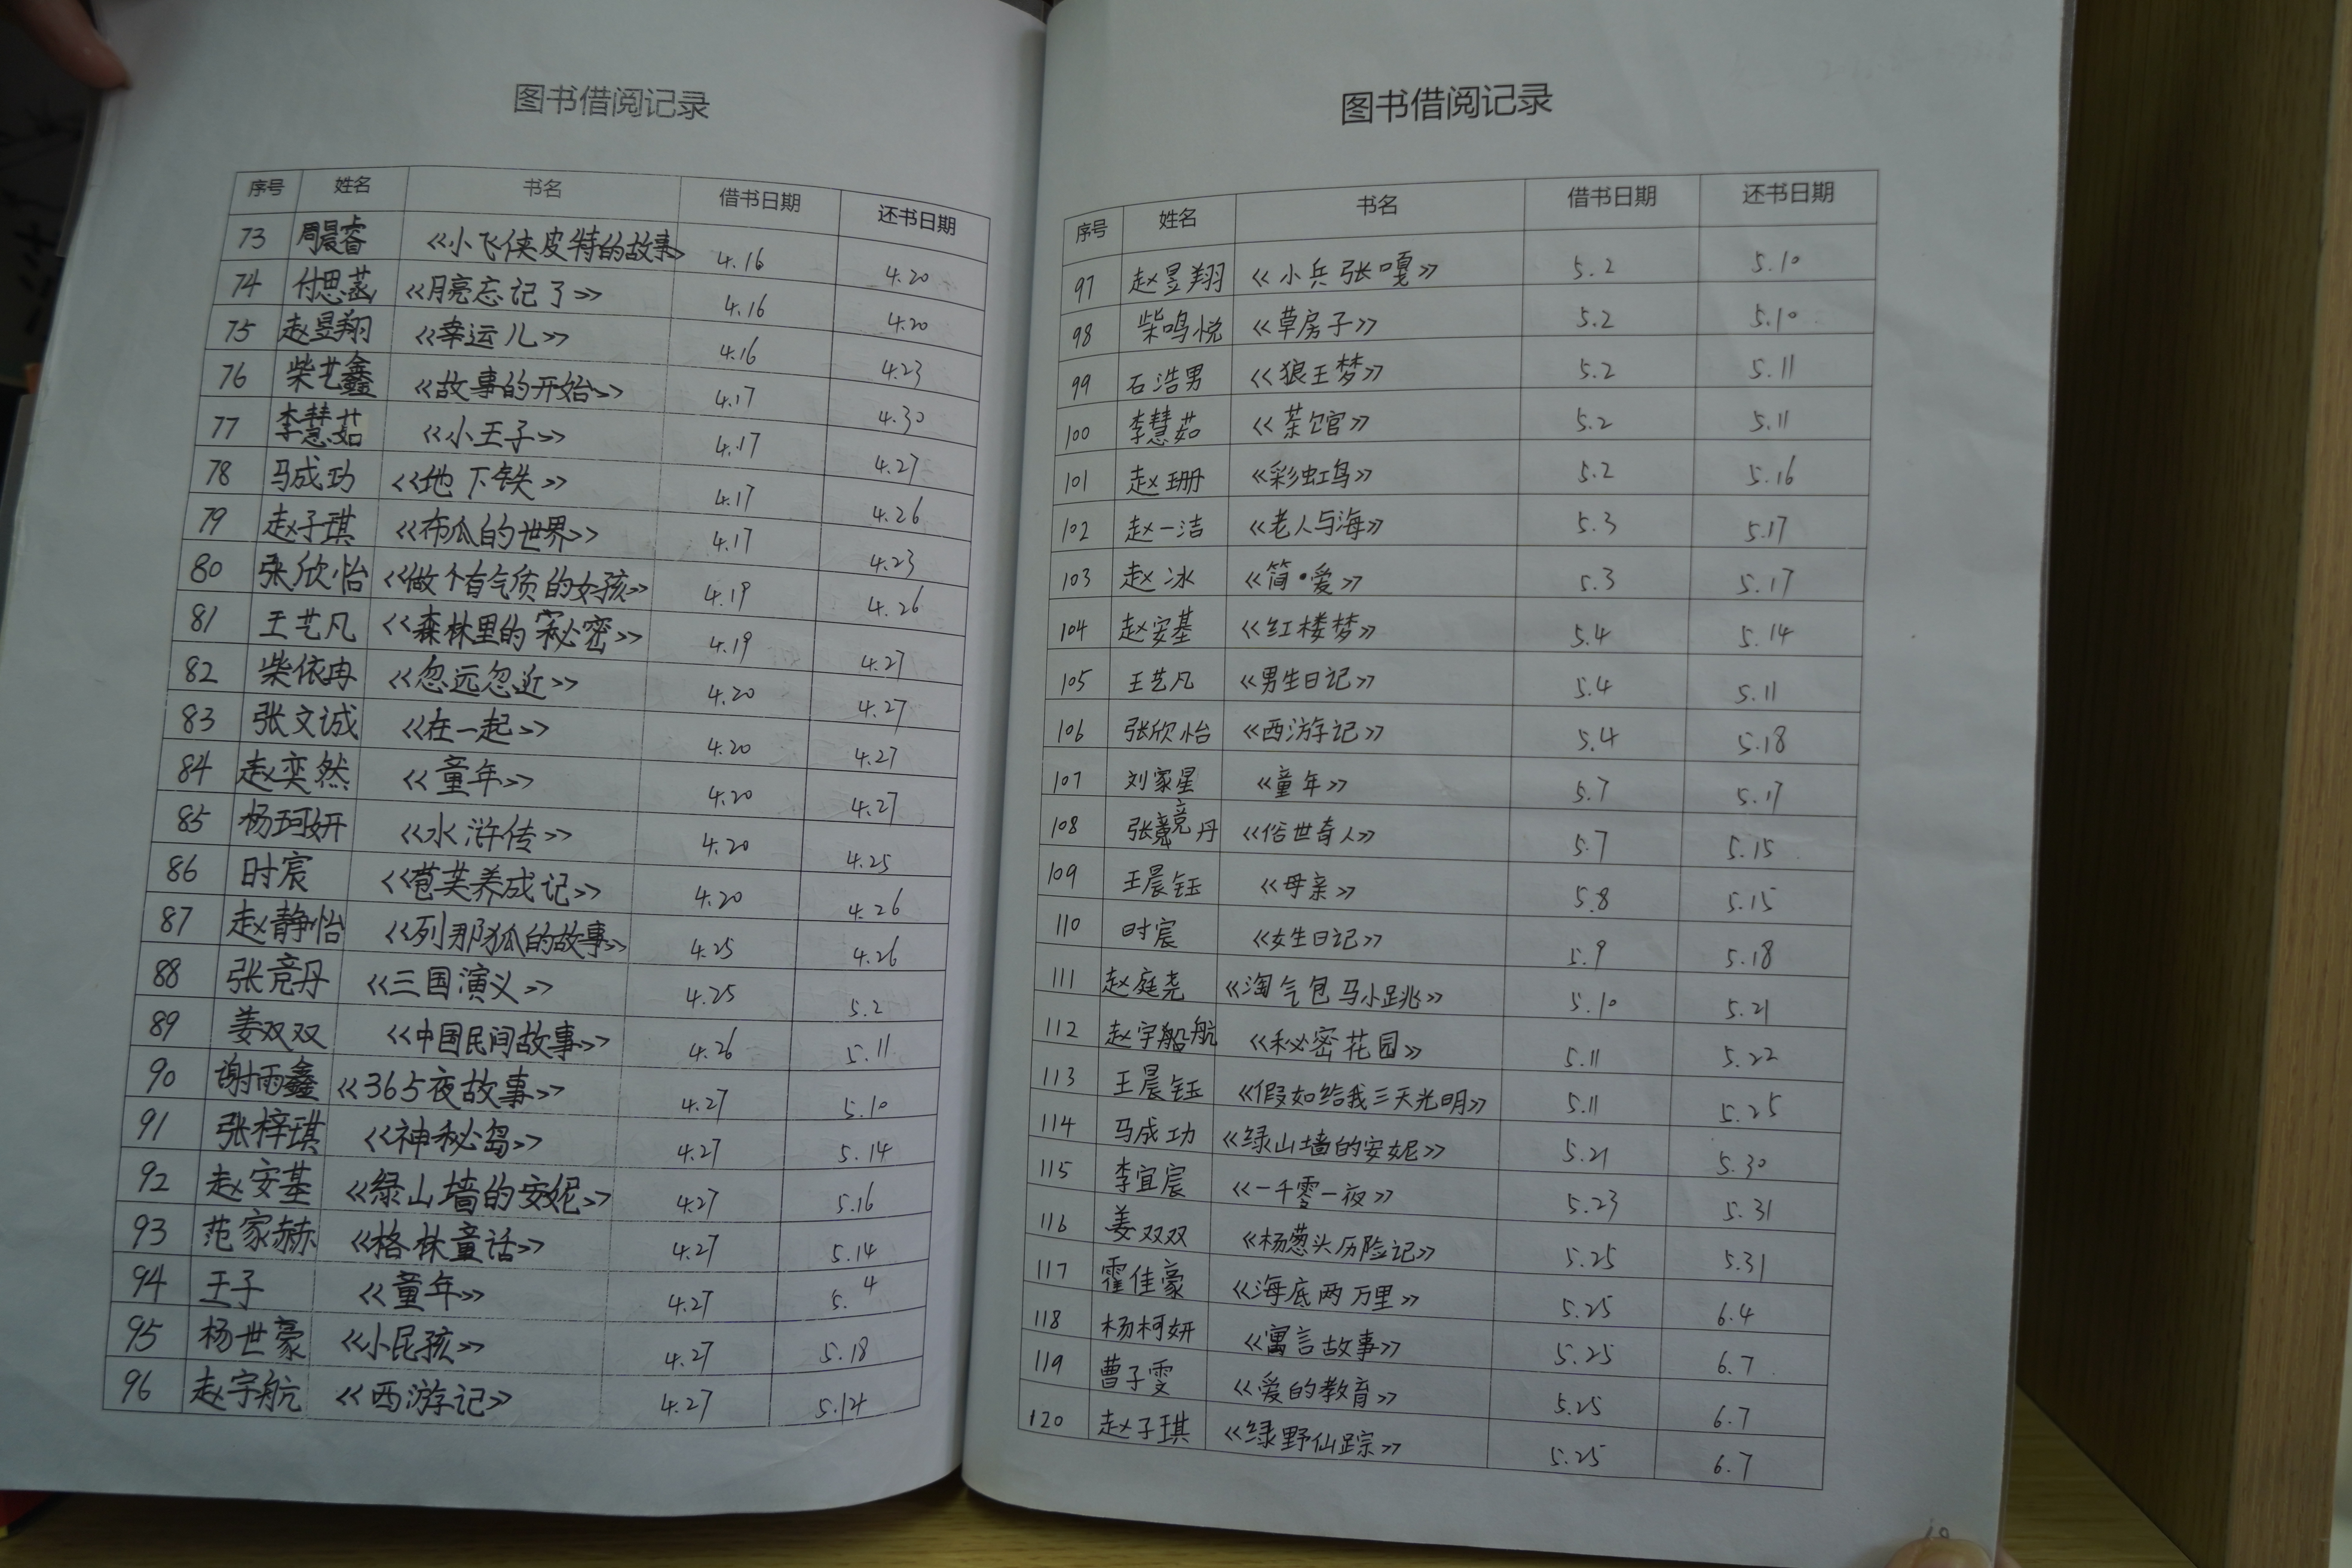 图书借阅记录
序号 姓名 书名 借书日期 还书日期
73 周晨睿 《小飞侠皮特的故事》 4.16 4.20
74 付思菡 《月亮忘记了》 4.16 4.20
75 赵昱翔 《幸运儿》 4.16 4.23
76 柴艺鑫 《故事的开始》 4.17 4.30
77 李慧茹 《小王子》 4.17 4.27
78 马成功 《地下铁》 4.17 4.26
79 赵子琪 《布瓜的世界》 4.17 4.23
80 张欣怡 《做个有气质的女孩》 4.19 4.26
81 王艺凡 《森林里的秘密》 4.19 4.27
82 柴依冉 《忽远忽近》 4.20 4.27
83 张文诚 《在一起》 4.20 4.27
84 赵奕然 《童年》 4.20 4.27
85 杨珂妍 《水浒传》 4.20 4.25
86 时宸 《芭芙养成记》 4.20 4.26
87 赵静怡 《列那狐的故事》 4.25 4.26
88 张竞丹 《三国演义》 4.25 5.2
89 姜双双 《中国民间故事》 4.26 5.11
90 谢雨鑫 《365夜故事》 4.27 5.10
91 张梓琪 《神秘岛》 4.27 5.14
92 赵安基 《绿山墙的安妮》 4.27 5.16
93 范家赫 《格林童话》 4.27 5.14
94 王子 《童年》 4.27 5.4
95 杨世豪 《小民孩》 4.27 5.18
96 赵宇航 《西游记》 4.27 5.14
图书借阅记录
序号 姓名 书名 借书日期 还书日期
97 赵昱翔 《小兵张嘎》 5.2 5.10
98 柴鸣悦 《草房子》 5.2 5.10
99 石浩男 《狼王梦》 5.2 5.11
100 李慧茹 《茶馆》 5.2 5.11
101 赵珊 《彩虹鸟》 5.2 5.16
102 赵一洁 《老人与海》 5.3 5.17
103 赵冰 《简·爱》 5.3 5.17
104 赵安基 《红楼梦》 5.4 5.14
105 王艺凡 《男生日记》 5.4 5.11
106 张欣怡 《西游记》 5.4 5.18
107 刘家星 《童年》 5.7 5.17
108 张竞丹 《俗世奇人》 5.7 5.15
109 王晨钰 《母亲》 5.8 5.15
110 时宸 《女生日记》 5.9 5.18
111 赵庭尧 《淘气包马小跳》 5.10 5.21
112 赵宇航 《秘密花园》 5.11 5.22
113 王晨钰 《假如给我三天光明》 5.11 5.25
114 马成功 《绿山墙的安妮》 5.21 5.30
115 李宜宸 《一千零一夜》 5.23 5.31
116 姜双双 《杨葱头历险记》 5.25 5.31
117 霍佳豪 《海底两万里》 5.25 6.4
118 杨柯妍 《寓言故事》 5.25 6.7
119 曹子雯 《爱的教育》 5.25 6.7
120 赵子琪 《绿野仙踪》 5.25 6.7